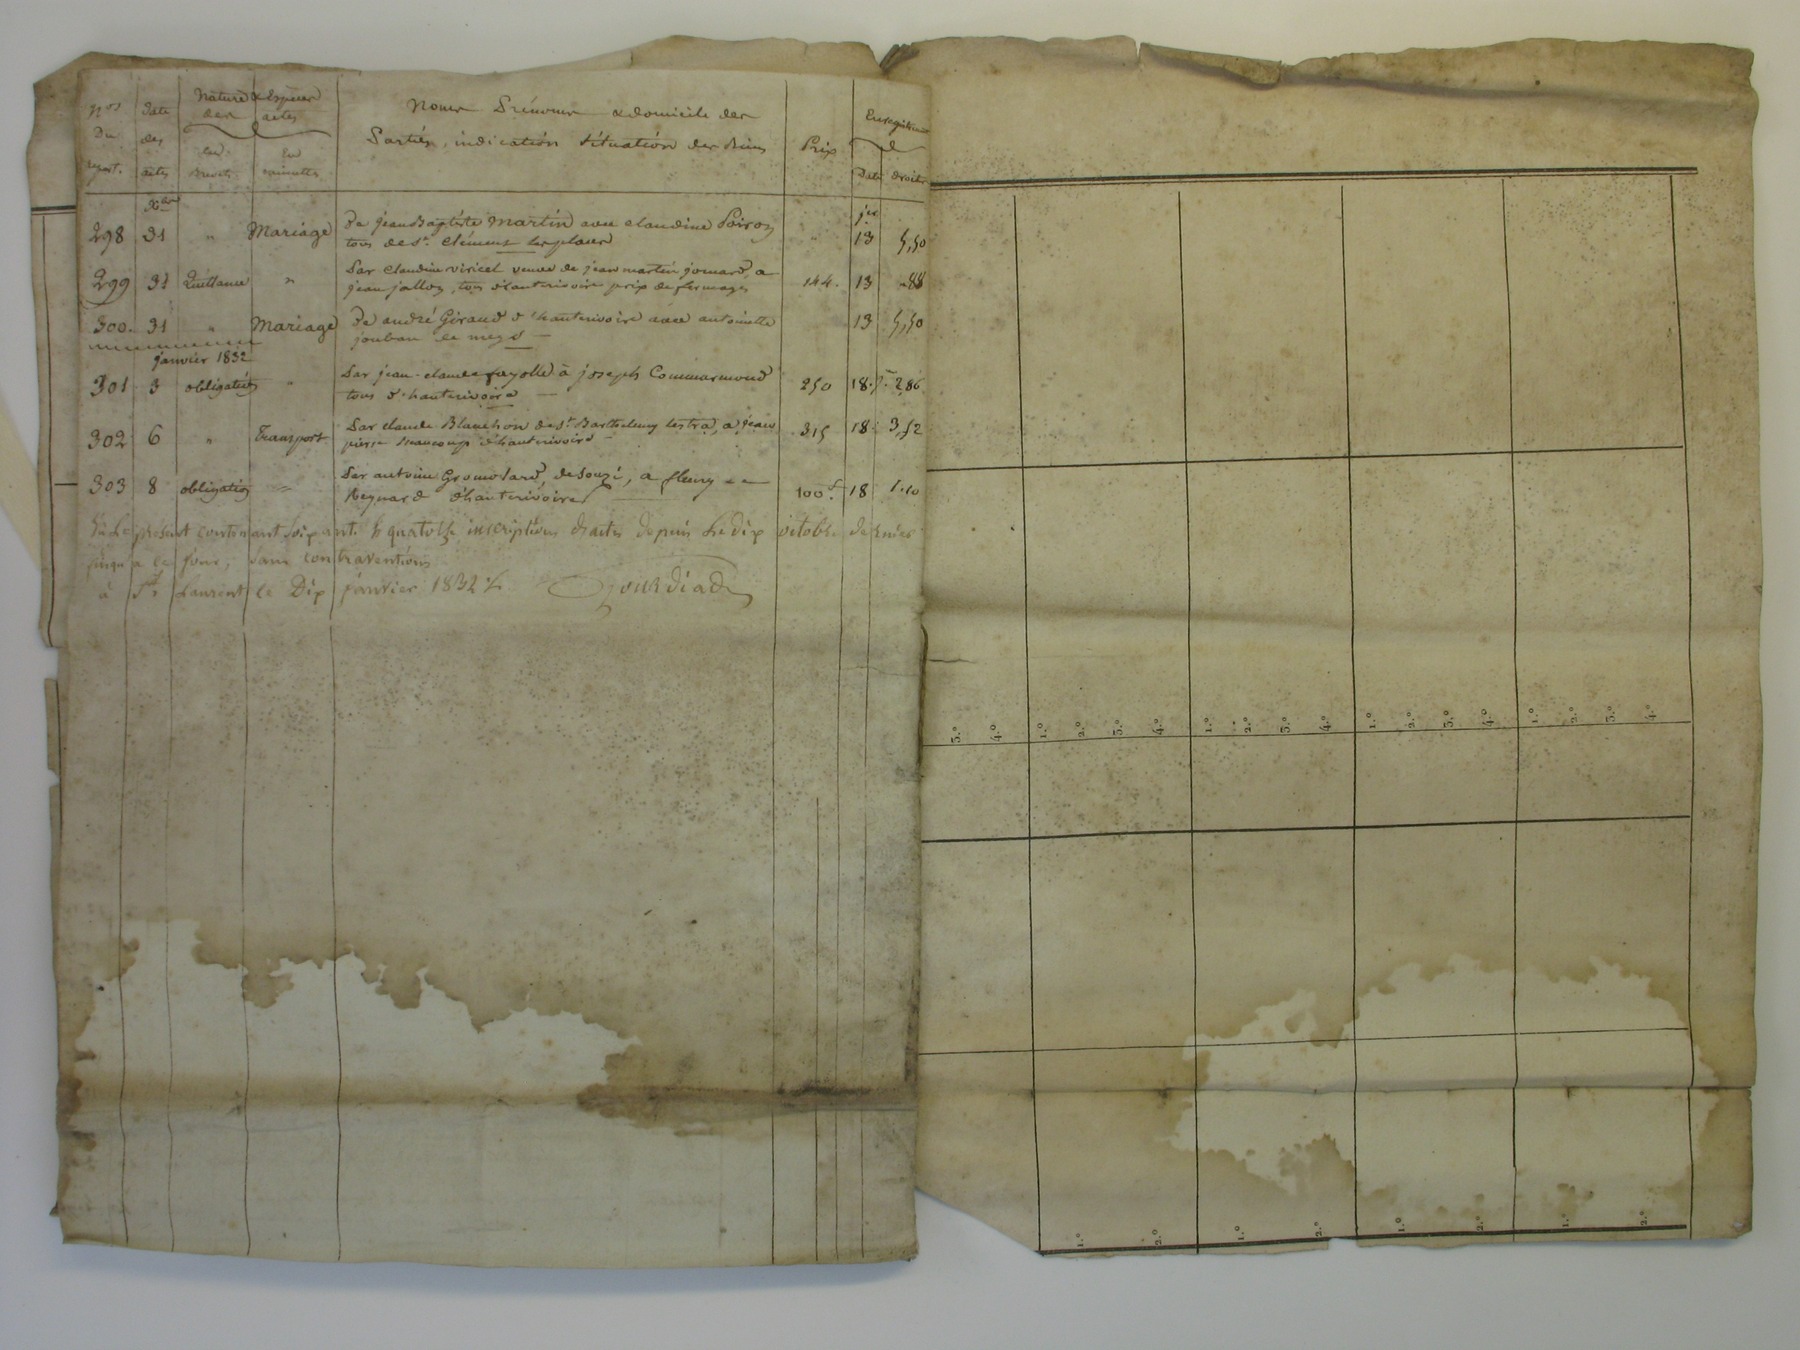 Nos Date Nature & Espèces Noms Prénoms & domicile des Enregistrement
Du des des actes Parties, indication Situation des Biens Prix
répert. actes en Brevets en minuttes Date droits
Xbre jer
298 31 " Mariage De jean Baptiste Martin avec claudine Poiron " 13 5,50
tous de St. Clément les places
299 31 Quittance " Par claudine viricel veuve de jean martin jomard, a 144. 13 "88
jean jallon, tous d'hauterivoire prix de fermages
300. 31 " Mariage De andré Giraud d'hauterivoire avec antoinette 13 5,50
janvier 1832
301 3 obligation " Par jean-claude fayolle à joseph Commarmond 250 18. 2,86
tous d'hauterivoire
302 6 " Transport Par claude Blanchon de St. Barthelemy lestra, a jean 315 18 3,52
pierre d'hauterivoire
303 8 obligation " Par antoine de Souzi, a fleury 100f 18 1.10
Reynard d'hauterivoire
Vu Le présent contenant Soixante & quatorze inscriptions d'actes depuis Le dix octobre dernier
jusqu'a ce jour, Sans contraventions
à St. Laurent le Dix janvier 1832
3.° 4.° 1.° 2.° 3.° 4.° 1.° 2.° 3.° 4.° 1.° 2.° 3.° 4.° 1.° 2.° 3.° 4.°
1.° 2.° 1.° 2.° 1.° 2.° 1.° 2.°